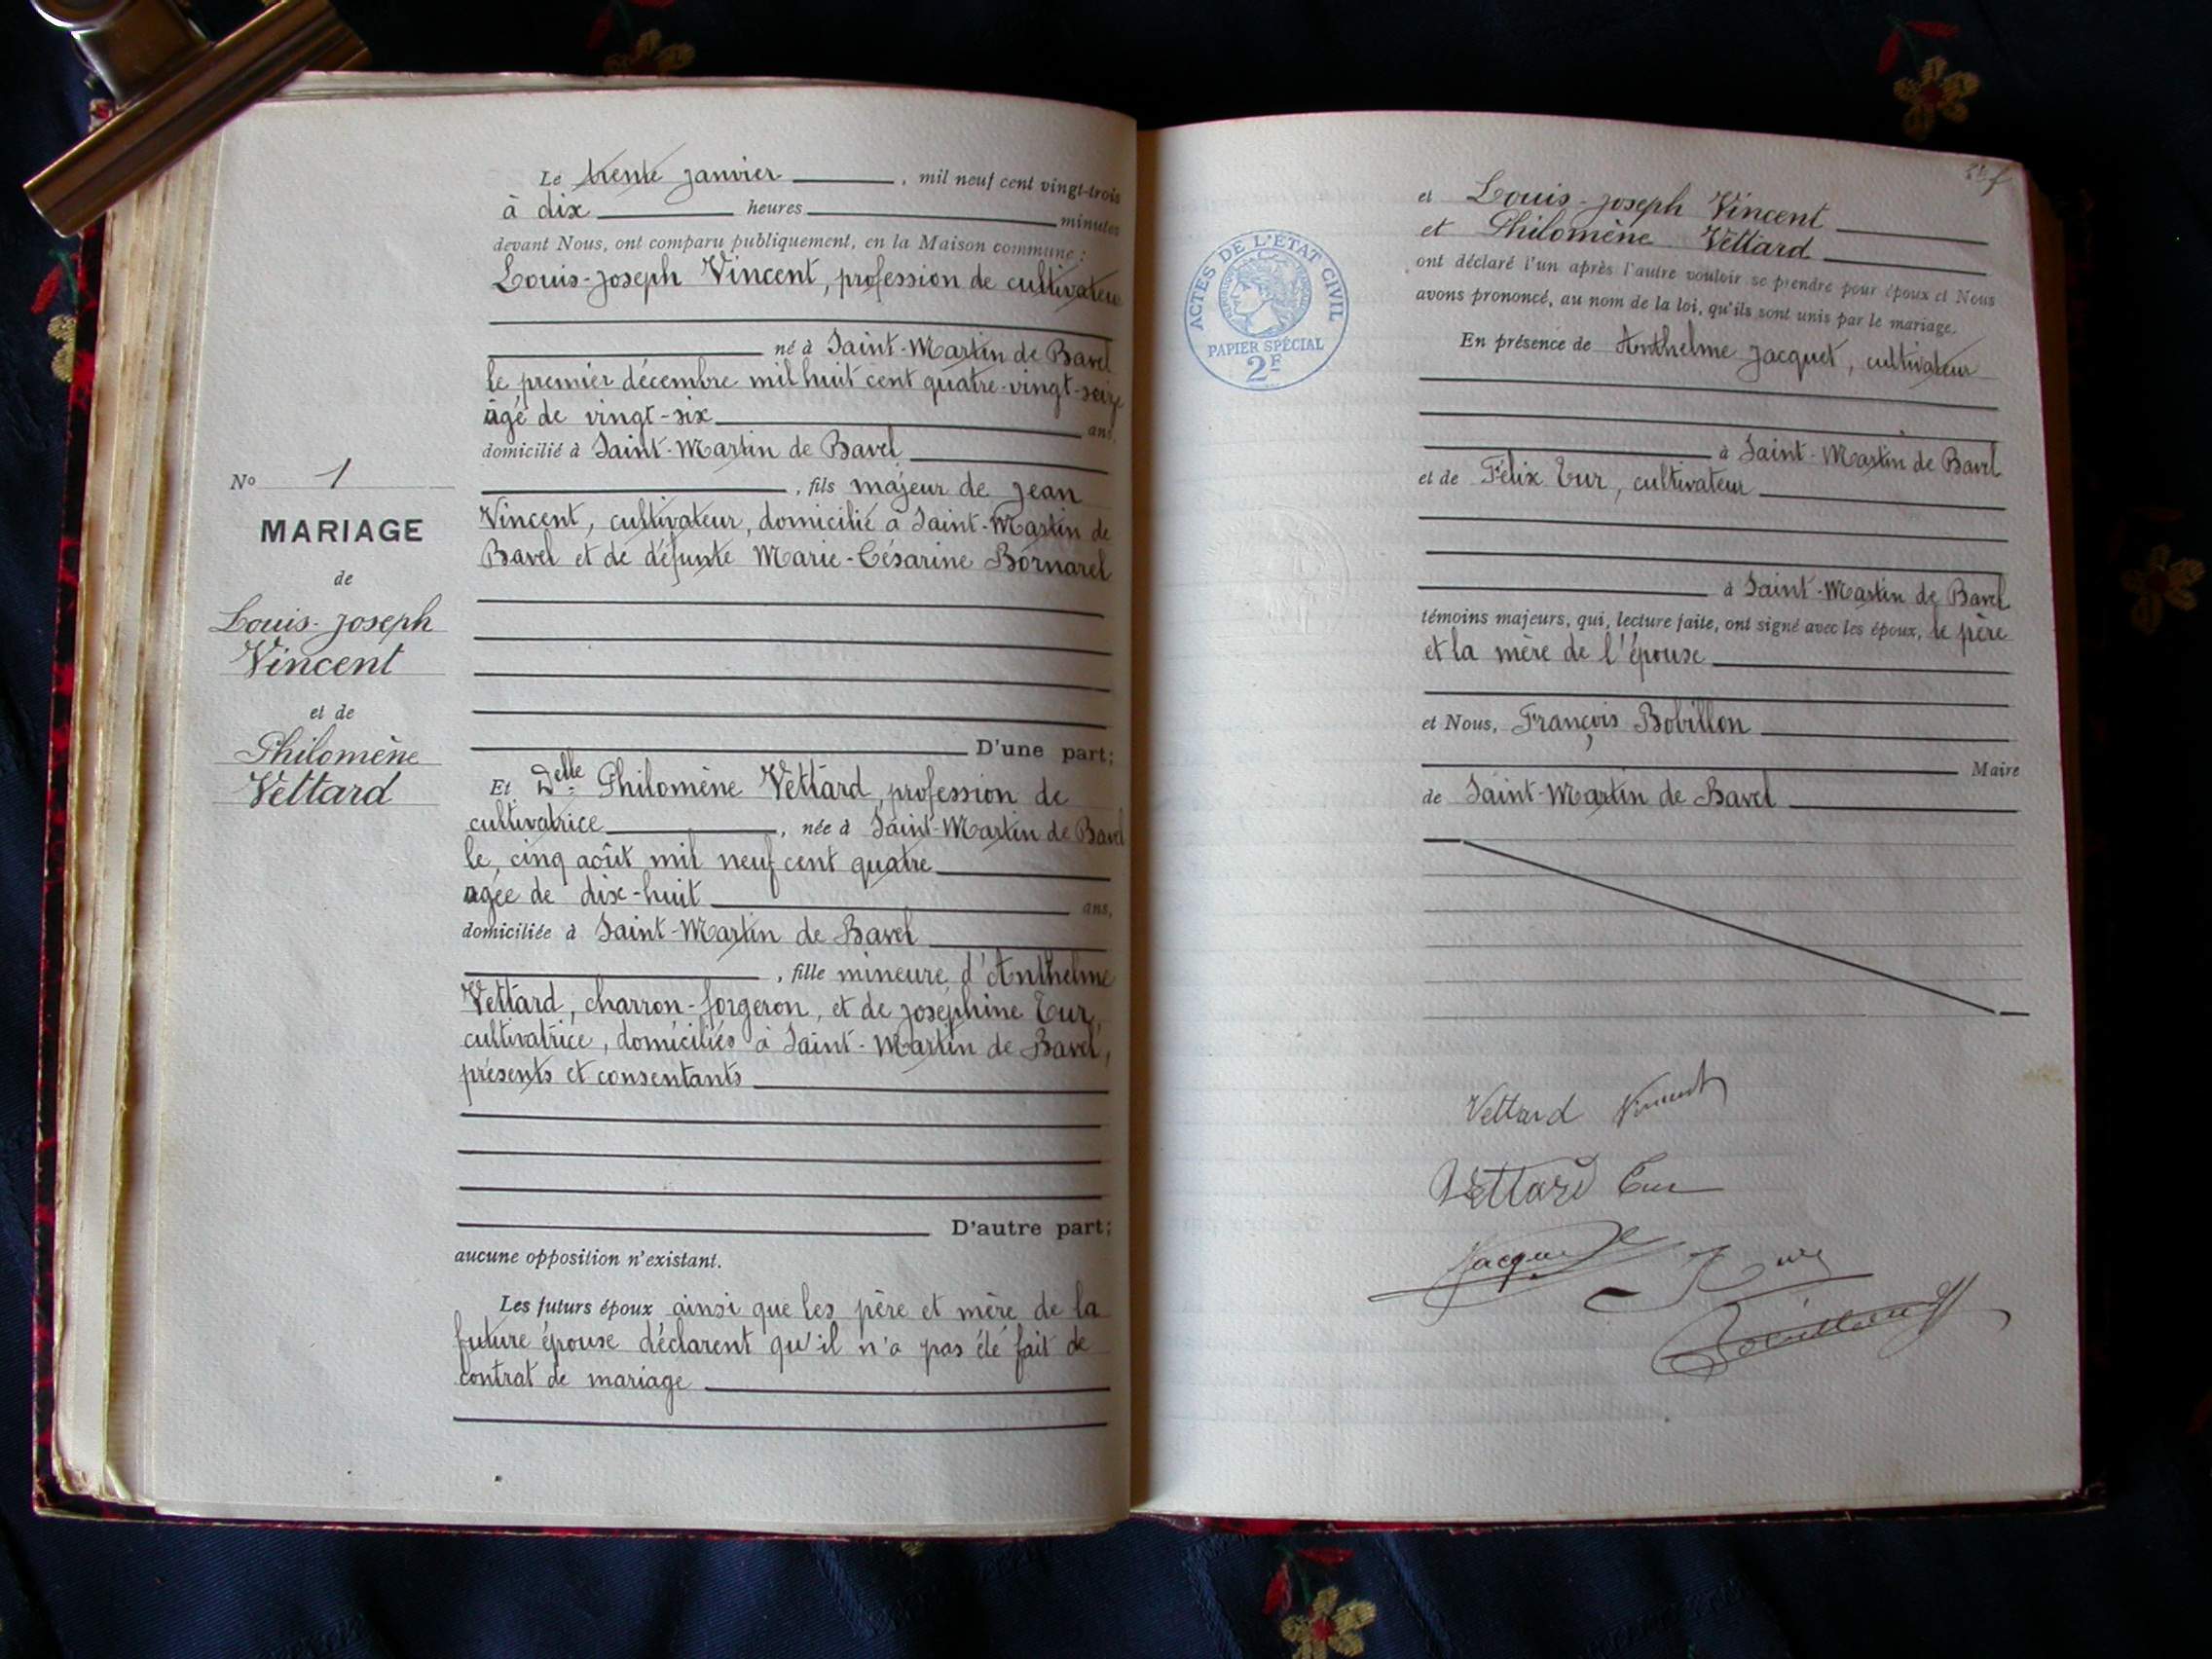 Le trente janvier, mil neuf cent vingt-trois
à dix heures minutes
devant Nous, ont comparu publiquement, en la Maison commune :
Louis-Joseph Vincent, profession de cultivateur
né à Saint-Martin de Bavel
le premier décembre mil huit cent quatre-vingt-seize
âgé de vingt-six ans,
domicilié à Saint-Martin de Bavel
, fils majeur de Jean
Vincent, cultivateur, domicilié à Saint-Martin de
Bavel et de défunte Marie-Césarine Bornarel
D'une part;
Et Delle Philomène Vettard, profession de
cultivatrice, née à Saint-Martin de Bavel
le cinq août mil neuf cent quatre
agée de dix-huit ans,
domiciliée à Saint-Martin de Bavel
, fille mineure d'Anthelme
Vettard, charron-forgeron, et de Joséphine Tur,
cultivatrice, domiciliés à Saint-Martin de Bavel,
présents et consentants
D'autre part;
aucune opposition n'existant.
Les futurs époux ainsi que les père et mère de la
future épouse déclarent qu'il n'a pas été fait de
contrat de mariage
No 1
MARIAGE
de
Louis-Joseph
Vincent
et de
Philomène
Vettard
et Louis-Joseph Vincent
et Philomène Vettard
ont déclaré l'un après l'autre vouloir se prendre pour époux et Nous
avons prononcé, au nom de la loi, qu'ils sont unis par le mariage.
En présence de Anthelme Jacquet, cultivateur
à Saint-Martin de Bavel
et de Félix Tur, cultivateur
à Saint-Martin de Bavel
témoins majeurs, qui, lecture faite, ont signé avec les époux, le père
et la mère de l'épouse
et Nous, François Bobillon
Maire
de Saint-Martin de Bavel
ACTES DE L'ÉTAT CIVIL
PAPIER SPÉCIAL
2F
Vettard Vincent
Vettard Tur
Jacquet Tur
Bobillon